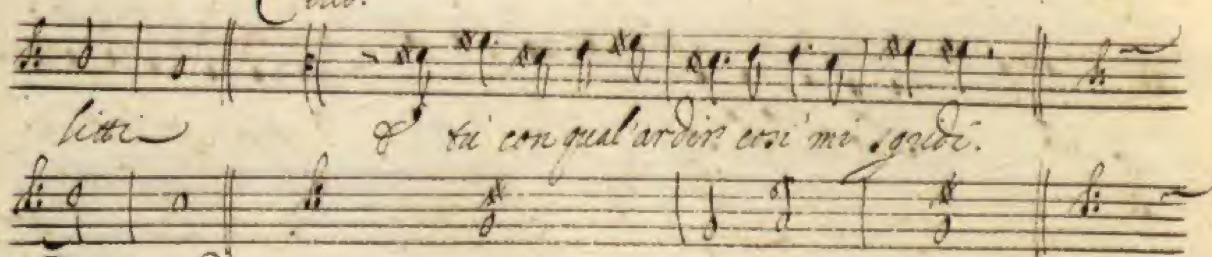 litti
& tu con qual'ardir così mi sgridi.